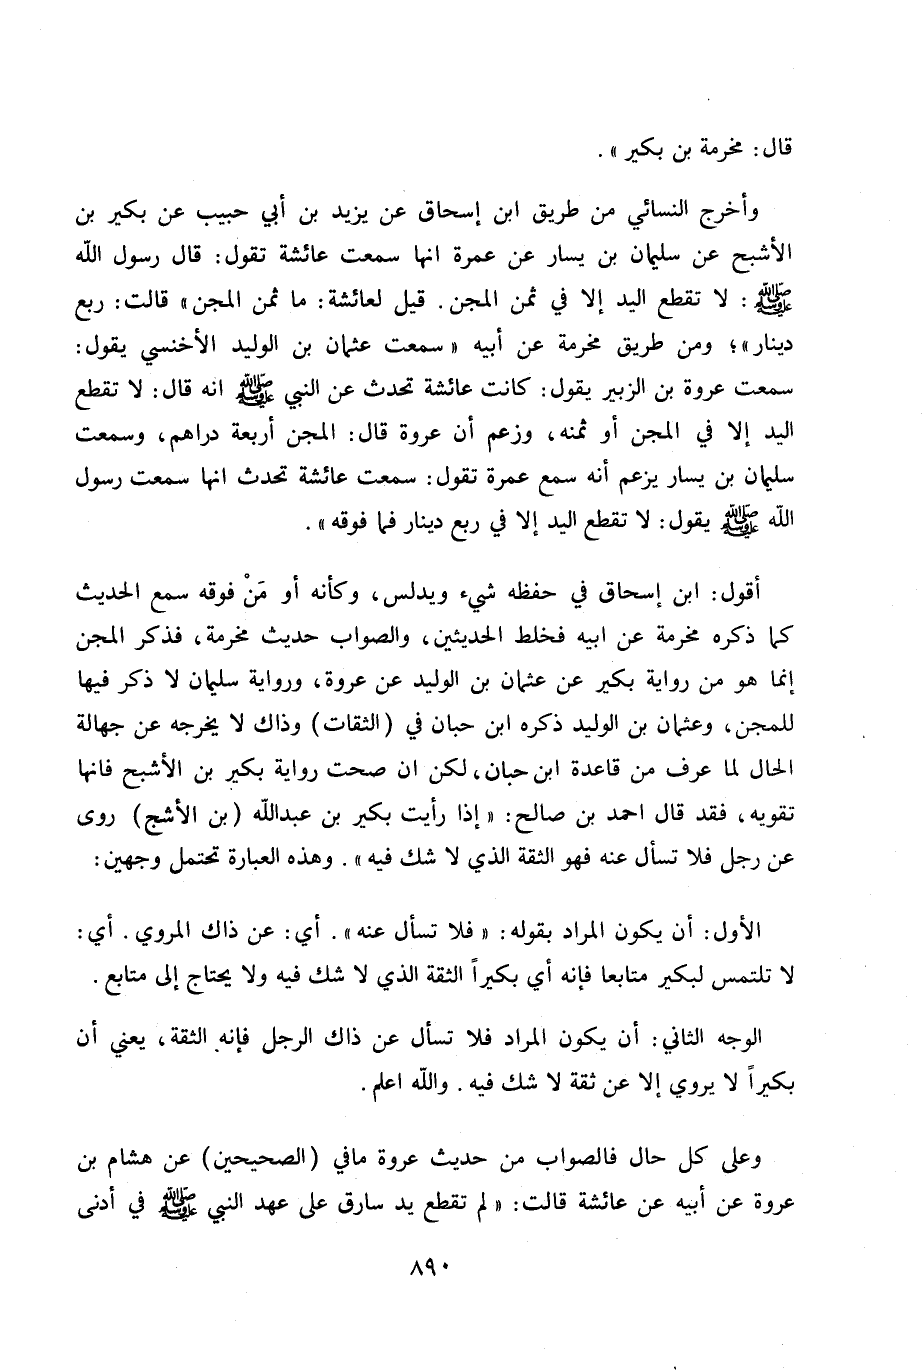 قال : مخرمة بن بكير » .
وأخرج النسائي من طريق ابن إسحاق عن يزيد بن أبي حبيب عن بكير بن
الأشبح عن سليمان بن يسار عن عمرة انها سمعت عائشة تقول : قال رسول الله
ﷺ : لا تقطع اليد إلا في ثمن المجن . قيل لعائشة : ما ثمن المجن » قالت : ربع
دينار » ؛ ومن طريق مخرمة عن أبيه « سمعت عثمان بن الوليد الأخنسي يقول :
سمعت عروة بن الزبير يقول : كانت عائشة تحدث عن النبي ﷺ انه قال : لا تقطع
اليد إلا في المجن أو ثمنه ، وزعم أن عروة قال : المجن أربعة دراهم ، وسمعت
سليمان بن يسار يزعم أنه سمع عمرة تقول : سمعت عائشة تحدث انها سمعت رسول
الله ﷺ يقول : لا تقطع اليد إلا في ربع دينار فما فوقه » .
أقول : ابن إسحاق في حفظه شيء ويدلس ، وكأنه أو مَنْ فوقه سمع الحديث
كما ذكره مخرمة عن ابيه فخلط الحديثين ، والصواب حديث مخرمة ، فذكر المجن
إنما هو من رواية بكير عن عثمان بن الوليد عن عروة ، ورواية سليمان لا ذكر فيها
للمجن ، وعثمان بن الوليد ذكره ابن حبان في ( الثقات ) وذاك لا يخرجه عن جهالة
الحال لما عرف من قاعدة ابن حبان ، لكن ان صحت رواية بكير بن الأشبح فانها
تقويه ، فقد قال احمد بن صالح : « إذا رأيت بكير بن عبدالله ( بن الأشج ) روى
عن رجل فلا تسأل عنه فهو الثقة الذي لا شك فيه » . وهذه العبارة تحتمل وجهين :
الأول : أن يكون المراد بقوله : « فلا تسأل عنه » . أي : عن ذاك المروي . أي :
لا تلتمس لبكير متابعا فإنه أي بكيراً الثقة الذي لا شك فيه ولا يحتاج إلى متابع .
الوجه الثاني : أن يكون المراد فلا تسأل عن ذاك الرجل فإنه الثقة ، يعني أن
بكيراً لا يروي إلا عن ثقة لا شك فيه . والله اعلم .
وعلى كل حال فالصواب من حديث عروة مافي ( الصحيحين ) عن هشام بن
عروة عن أبيه عن عائشة قالت : « لم تقطع يد سارق على عهد النبي ﷺ في أدنى
٨٩٠